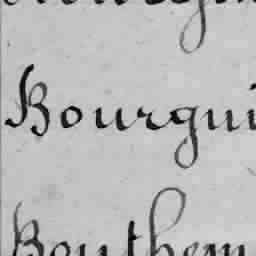 Bourgui
Bouthem